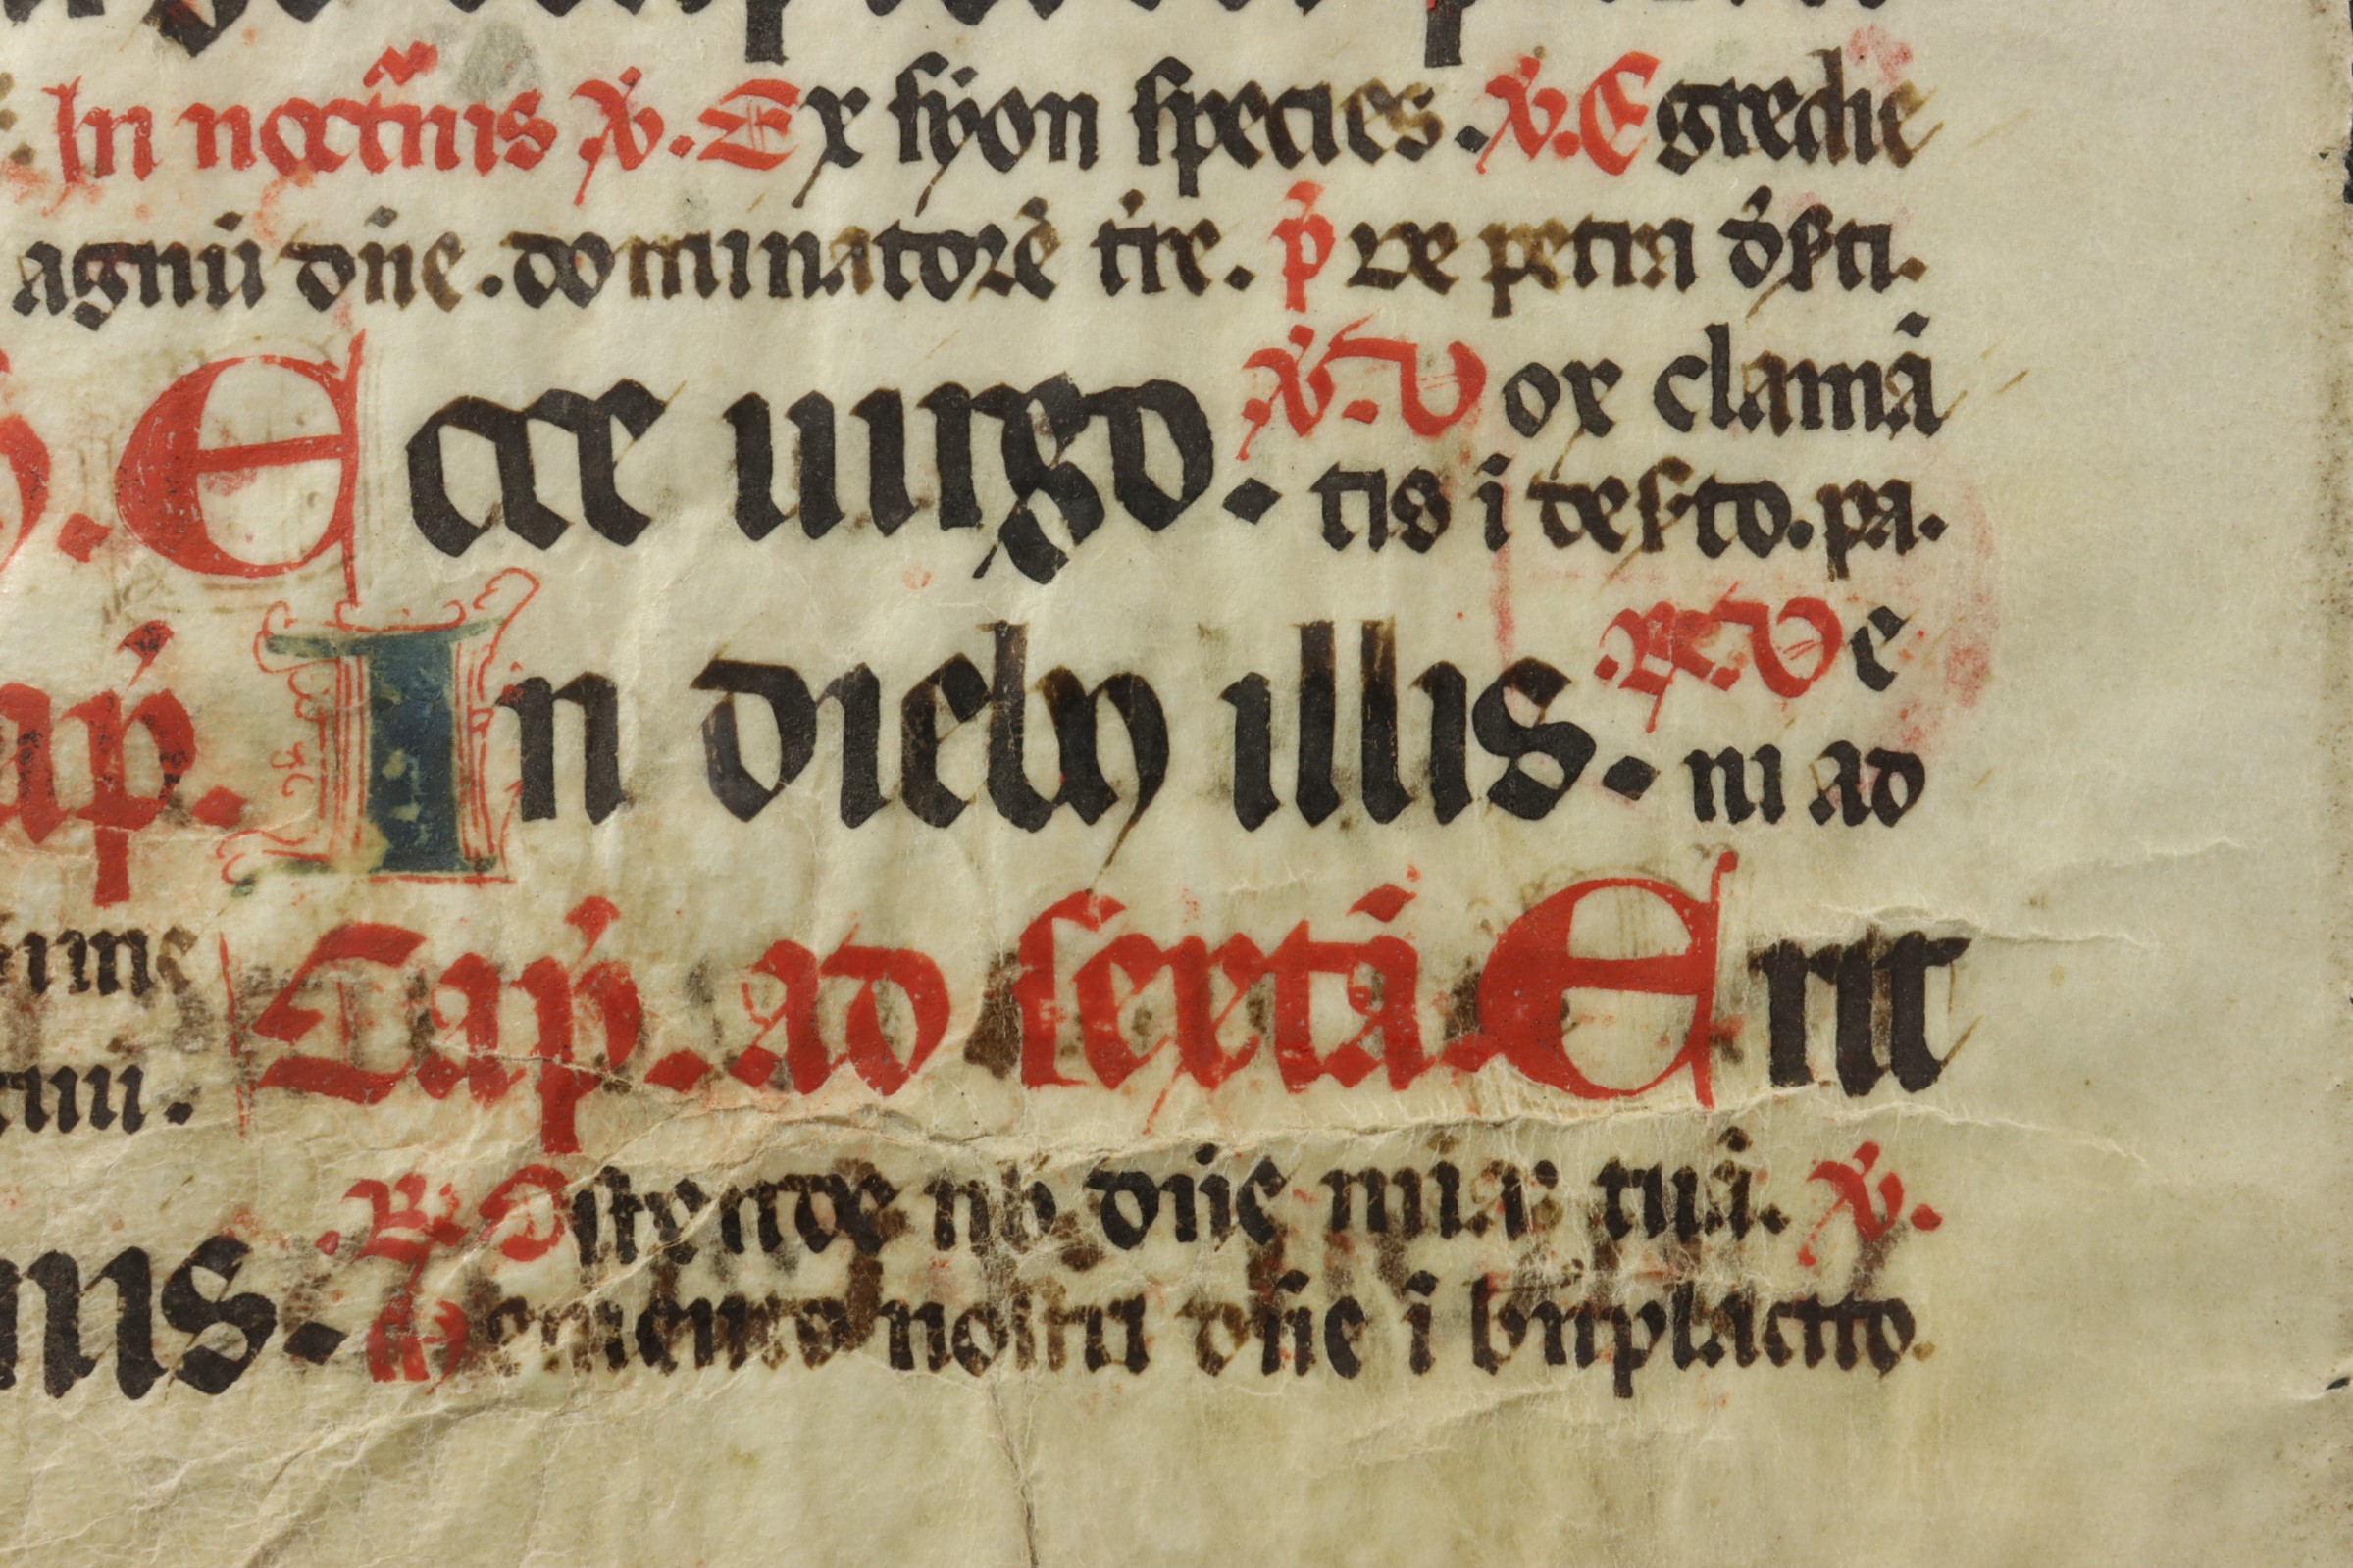 In noctͬnis ℣. Ex syon species. ℣. Egredie
agnū dn̄e. dominatorē tr̄e. p̄ de petra d̓s̓ti.
Ecce uirgo. ℣. Vox clamā
tis ī des̓to. pa.
ap̓. In dieb⁊ illis. ℟. Ve
ni ad
Cap̓. ad sextā. Erit
℟. Ostende nb̓ dn̄e mīaꝫ tuā. ℣.
nis. Memento nostri dn̄e ī bn̄placito.